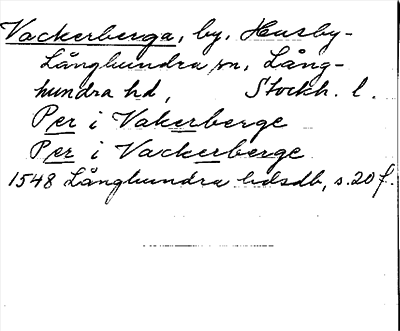 Vackerberga, by, Husby-
Långhundra sn, Lång-
hundra hd, Stockh. l.
Per i Vakerberge
Per i Vackerberge
1548 Långhundra hdsdb, s. 20 f.